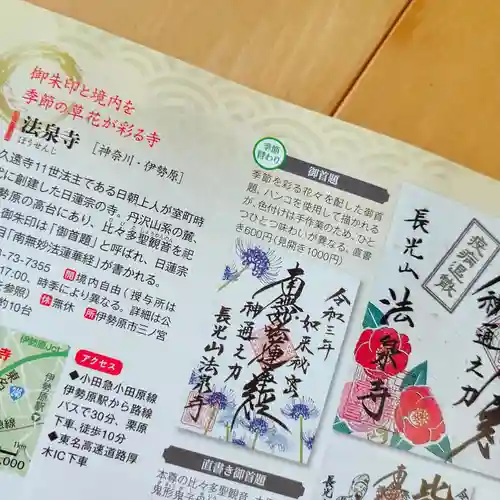 御朱印と境内を
季節の草花が彩る寺
法泉寺 [神奈川・伊勢原]
ほうせんじ
久遠寺11世法主である日朝上人が室町時
に創建した日蓮宗の寺。丹沢山系の麓、
勢原の高台にあり、比々多聖観音を祀
御朱印は「御首題」と呼ばれ、日蓮宗
目「南無妙法蓮華経」が書かれる。
3-73-7355 開境内自由(授与所は
17:00、時季により異なる。詳細は公
参照) 休無休 所伊勢原市三ノ宮
約10台
アクセス
●小田急小田原線
伊勢原駅から路線
バスで30分、栗原
下車、徒歩10分
●東名高速道路厚
木IC下車
伊勢原Jct
東名
伊勢原駅
1km
季節替わり
御首題
季節を彩る花々を配した御首
題。ハンコを使用して描かれる
が、色付けは手作業のため、ひと
つひとつ味わいが異なる。直書
き600円(見開き1000円)
令和三年
如来秘密
南無妙法蓮華経
神通之力
長光山法泉寺
疫病退散
神通之力
長光山
法泉寺
直書き御首題
本尊の比々多聖観音、
鬼形鬼子